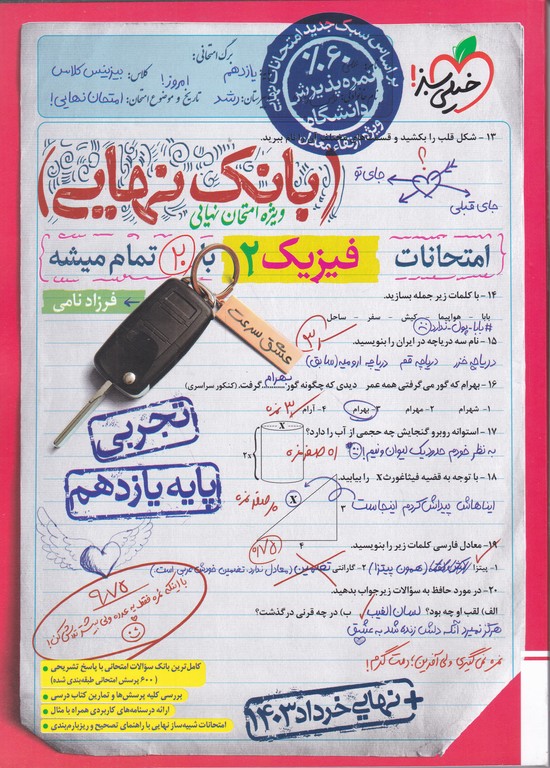 خیلی سبز!
بر اساس سبک جدید امتحانات نهایی
%۶۰
نمره پذیرش
دانشگاه
ویژه ارتقاء معدل
برگ امتحانی:
یازدهم
کلاس: بیزینس کلاس
امروز!
رشد
تاریخ و موضوع امتحان: امتحان نهایی!
۱۳ - شکل قلب را بکشید و
ببرید.
؟
جای تو
جای قبلی
(بانک نهایی)
ویژه امتحان نهایی
امتحانات فیزیک ۲ با ۲۰ تمام میشه
فرزاد نامی
عشق سرعت
۱۴ - با کلمات زیر جمله بسازید.
بابا - هواپیما - کیش - سفر - ساحل
#بابا-پول-نداره
۱۵ - نام سه دریاچه در ایران را بنویسید.
دریاچه خزر دریاچه قم دریاچه ارومیه (سابق)
۱۶ - بهرام که گور می‌گرفتی همه عمر دیدی که چگونه گور بهرام گرفت. (کنکور سراسری)
۱- شهرام ۲- مهرام ۳- بهرام ۴- آرام
۱۷ - استوانه روبرو گنجایش چه حجمی از آب را دارد؟
به نظر خودم حدود یک لیوان و نیم!
x
2x
۱۸ - با توجه به قضیه فیثاغورث X را بیابید.
ایناهاش پیداش کردم اینجاست
X
۳
۴
۱۹ - معادل فارسی کلمات زیر را بنویسید.
۱- پیتزا (همون پیتزا) ۲- گارانتی تضمین (معادل ندارد، تضمین خودش عربی است.)
۲۰ - در مورد حافظ به سؤالات زیر جواب بدهید.
الف) لقب او چه بود؟ لسان الغیب ب) در چه قرنی درگذشت؟
هرگز نمیرد آنکه دلش زنده شد به عشق
نمره نمی‌گیری ولی آفرین! دمت گرم!
تجربی
پایه یازدهم
کامل‌ترین بانک سؤالات امتحانی با پاسخ تشریحی
(۶۰۰ پرسش امتحانی طبقه‌بندی شده)
بررسی کلیه پرسش‌ها و تمارین کتاب درسی
ارائه درسنامه‌های کاربردی همراه با مثال
امتحانات شبیه‌ساز نهایی با راهنمای تصحیح و ریزبارم‌بندی
+ نهایی خرداد ۱۴۰۳